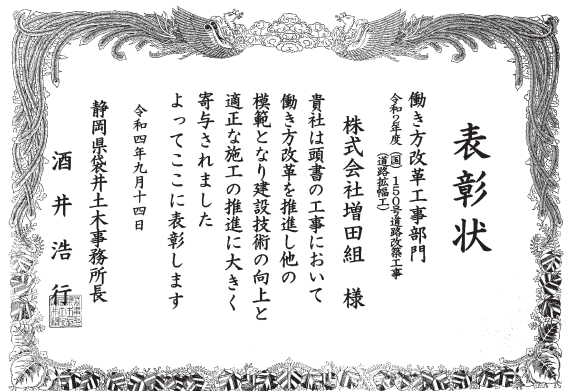 表彰状
働き方改革工事部門
令和2年度 (国)150号道路改築工事
(道路拡幅工)
株式会社増田組 様
貴社は頭書の工事において
働き方改革を推進し他の
模範となり建設技術の向上と
適正な施工の推進に大きく
寄与されました
よってここに表彰します
令和四年九月十四日
静岡県袋井土木事務所長
酒井浩行